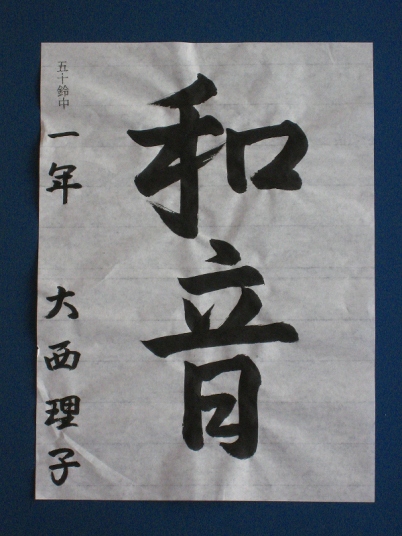 和音
五十鈴中
一年 大西理子